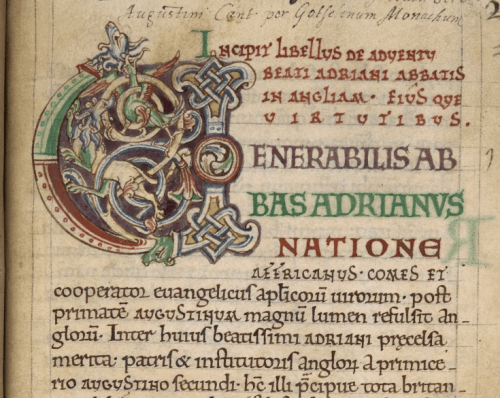 Augustini Cant. per Gotselinum Monachum
INCIPIT LIBELLUS DE ADVENTU
BEATI ADRIANI ABBATIS
IN ANGLIAM · EIUS QUE
VIRTUTIBUS.
ENERABILIS AB
BAS ADRIANVS
NATIONE
AFFRICANUS · COMES ET
cooperator euangelicus aplicorū uirorum · post
primatē AUGUSTINUM magnū lumen refulsit an-
glorū. Inter huius beatissimi ADRIANI pręcelsa
merita · patris & institutoris anglorꝫ a primice-
rio AUGUSTINO secundi · hęc illi p̄cipue tota britan-